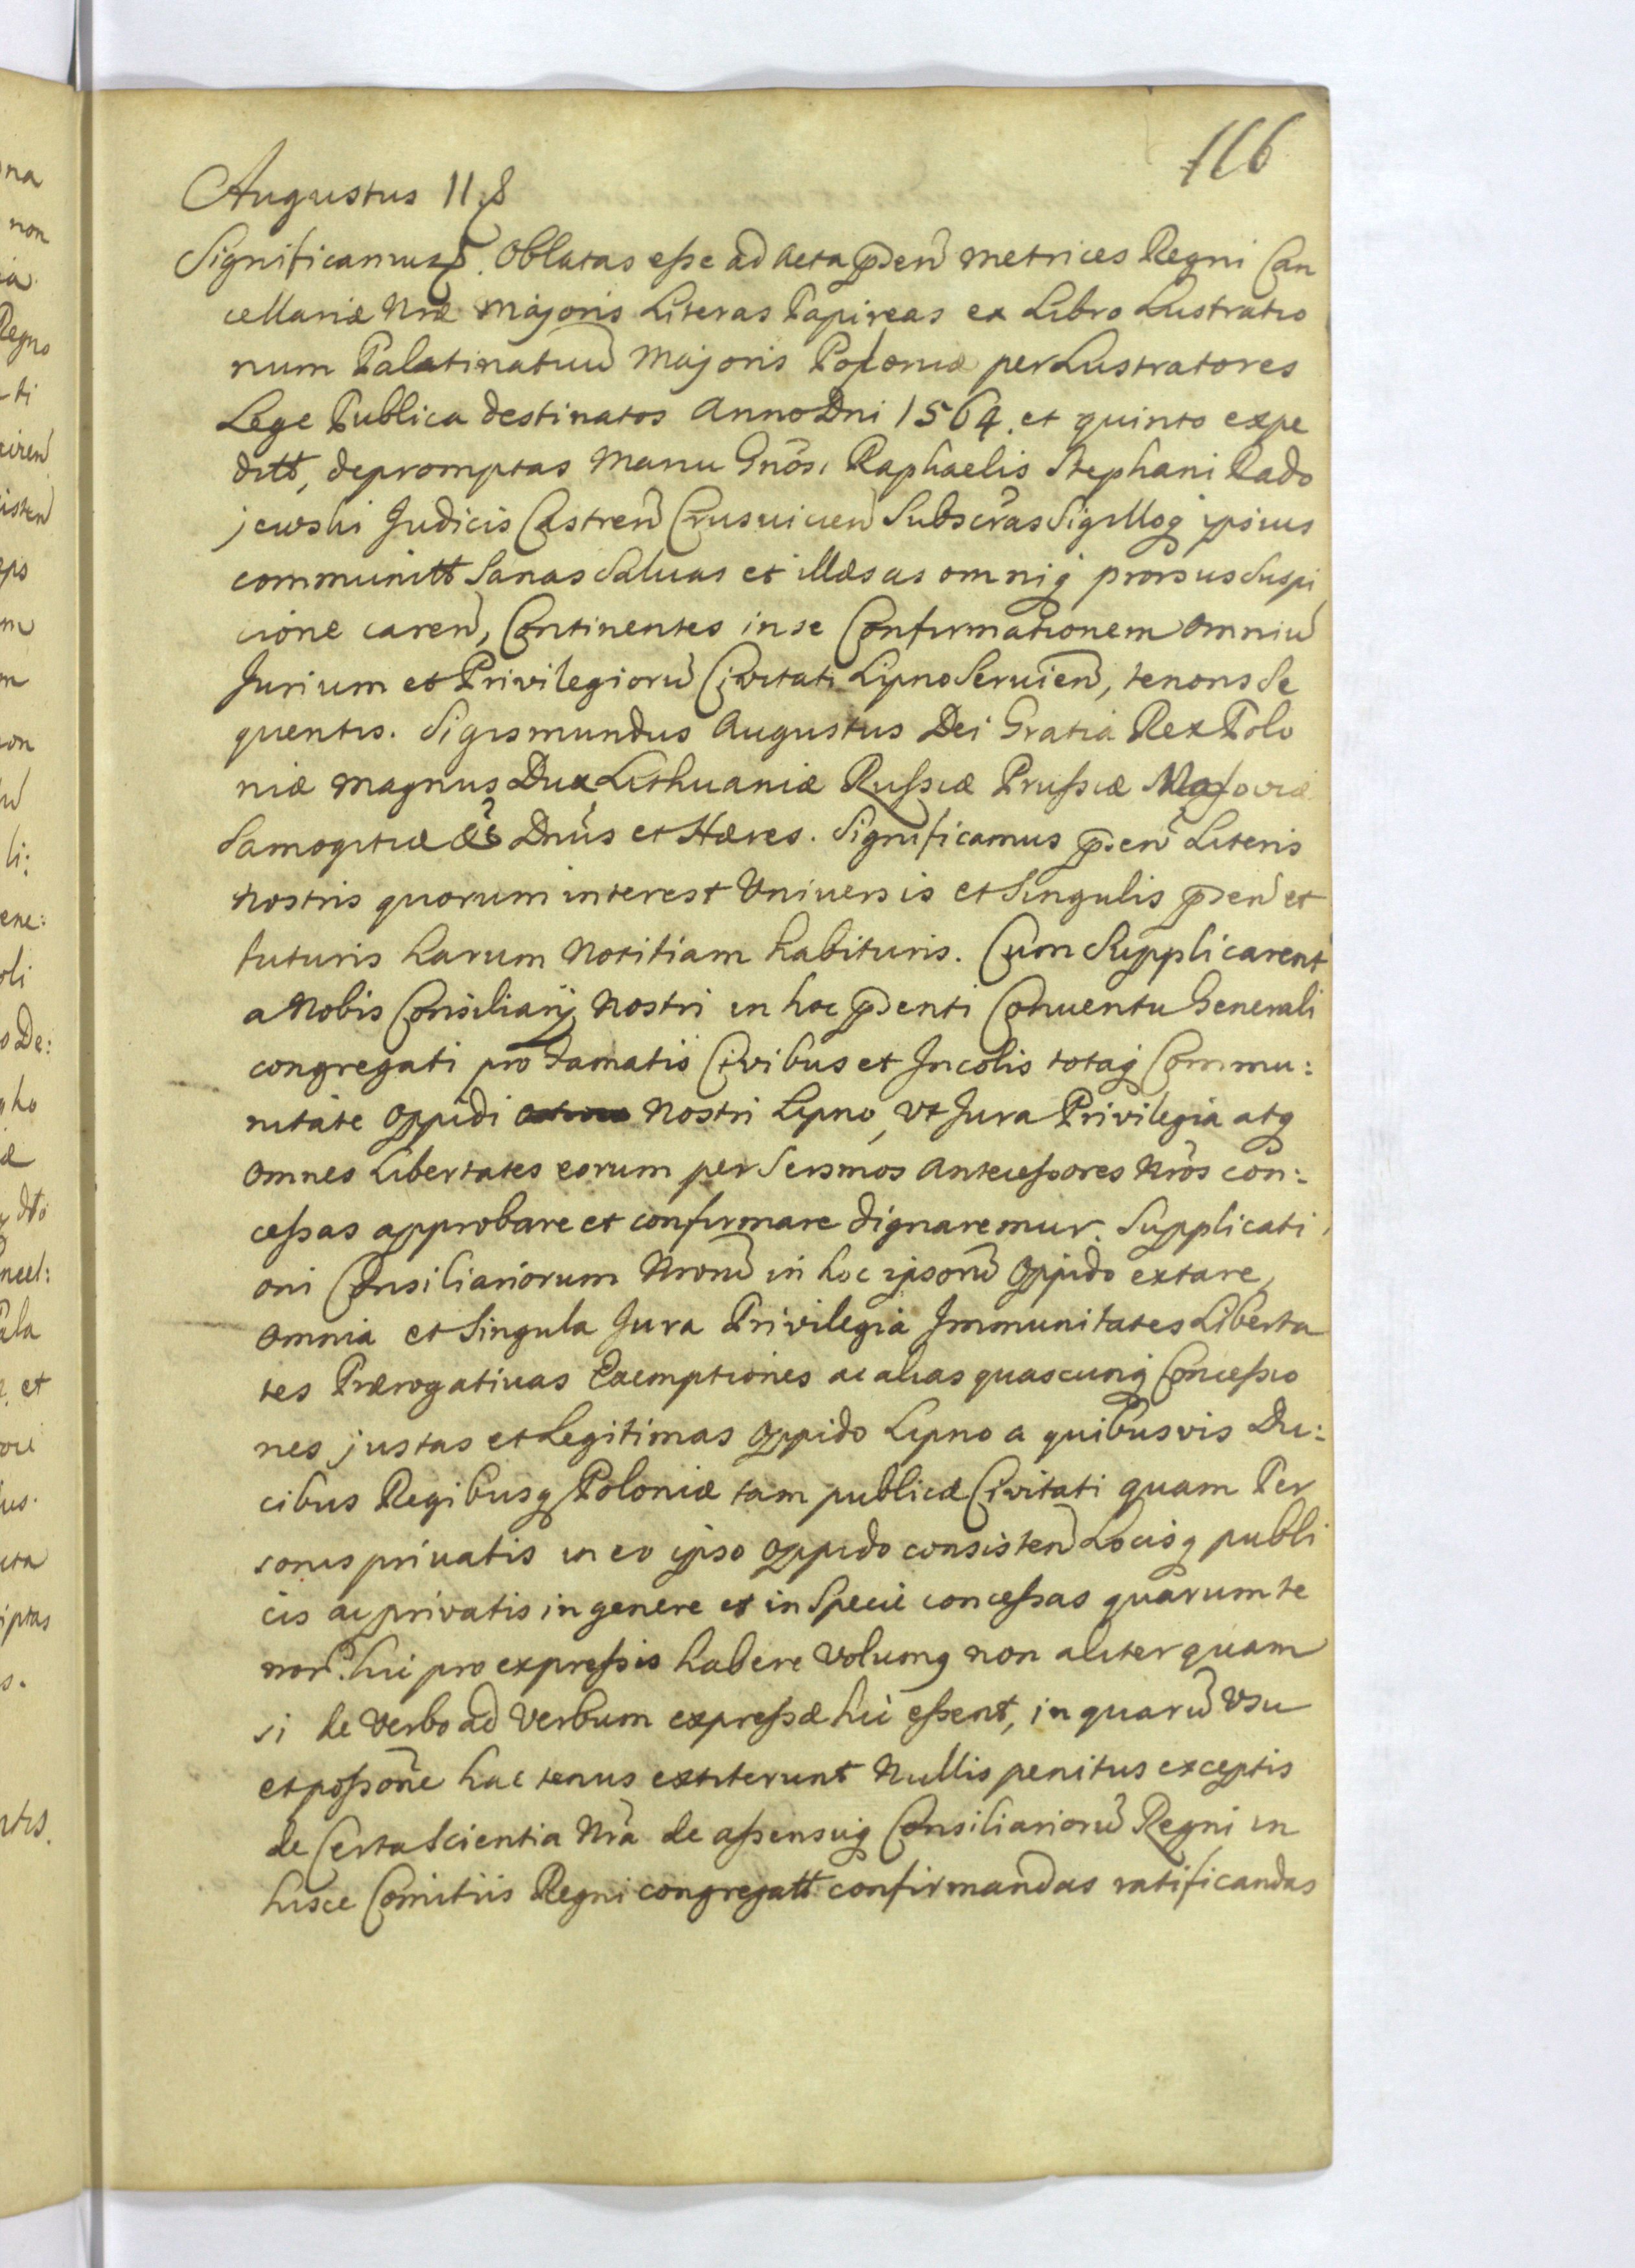 116
Augustus II. &
Significamus &. Oblatas esse ad Acta p̃sen̄ Metrices Regni Can
cellariæ Nr̃æ Majoris Literas Papireas ex Libro Lustratio
num Palatinatuū Majoris Poloniæ per Lustratores
Lege Publica destinatos Anno Dni 1564. et quinto expe
ditt, depromptas Manu Gnosi Raphaelis Stephani Rado
jewski Judicis Castren̄ Crusvicien̄ Subscr̃as Sigilloq ipsius
communitt Sanas Salvas et illæsas omniq prorsus Suspi
cione caren̄, Continentes in se Confirmationem Omniū
Jurium et Privilegiorū Civitati Lipno Servien̄, tenoris Se
quentis. Sigismundus Augustus Dei Gratia Rex Polo
niæ Magnus Dux Lithuaniæ Russiæ Prussiæ Masoviæ
Samogitiæ &c Dnũs et Hæres. Significamus p̃sen̄ Literis
Nostris quorum interest Universis et Singulis p̃sen̄ et
futuris harum Notitiam habituris. Cum Supplicarent
a Nobis Consiliarij Nostri in hoc p̃senti Conventu Generali
congregati pro Famatis Civibus et Incolis totaq Commu:
nitate Oppidi Nostri Lipno, Vt Jura Privilegia atq
Omnes Libertates eorum per Sersmos Antecessores Nr̃os con:
cessas approbare et confirmare dignaremur. Supplicati
oni Consiliariorum Nrorū in hoc ipsorū Oppido extare,
Omnia et Singula Jura Privilegia Immunitates Liberta
tes Prærogativas Exemptiones ac alias quascunq Concessio
nes justas et Legitimas Oppido Lipno a quibusvis Du:
cibus Regibusq Poloniæ tam publicæ Civitati quam Per
sonis privatis in eo ipso Oppido consisten̄ Locisq publi
cis ac privatis in genere et in Specie concessas quarum te
nor. hic pro expressis habere Volumq non aliter quam
si de Verbo ad Verbum expressæ hic essent, in quarū Vsu
et possoñe hactenus extiterunt Nullis penitus exceptis
de Certa Scientia Nr̃a de assensuq Consiliariorū Regni in
hisce Comitiis Regni congregatt confirmandas ratificandas